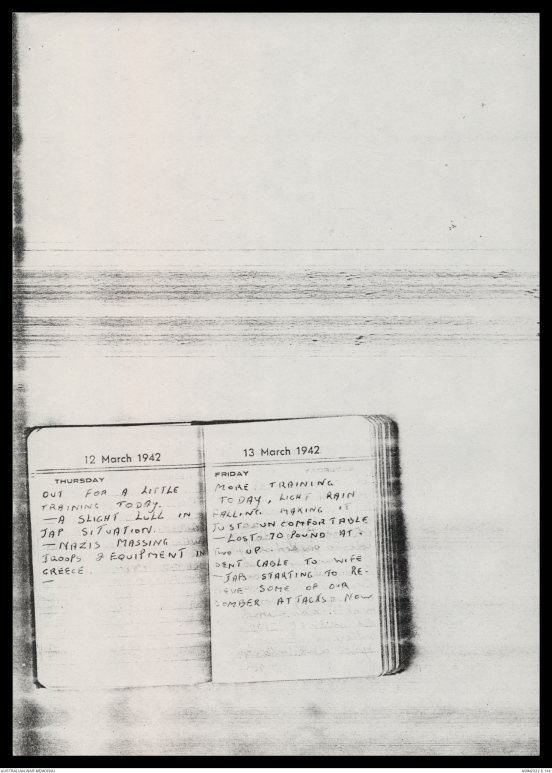 12 March 1942
THURSDAY
OUT FOR A LITTLE
TRAINING TODAY.
—A SLIGHT LULL IN
JAP SITUATION.
—NAZIS MASSING
TROOPS & EQUIPMENT IN
GREECE.
—
13 March 1942
FRIDAY
MORE TRAINING
TODAY, LIGHT RAIN
FALLING MAKING IT
JUST UNCOMFORTABLE
—LOST 70 POUND AT
TWO UP
SENT CABLE TO WIFE
—JAPS STARTING TO RE-
SOME OF OUR
BOMBER ATTACKS NOW
AUSTRALIAN WAR MEMORIAL